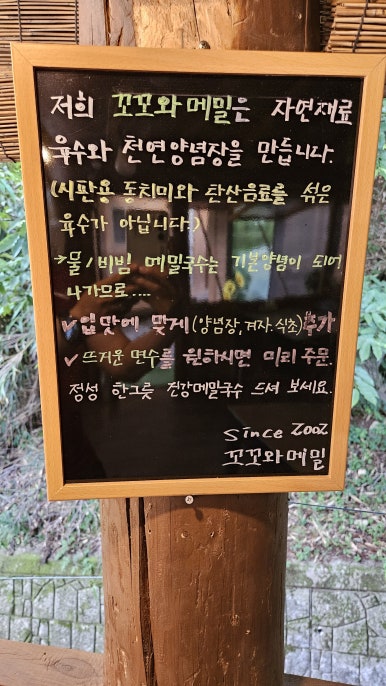 저희 꼬꼬와메밀은 자연재료
육수와 천연양념장을 만듭니다.
(시판용 동치미와 탄산음료를 섞은
육수가 아닙니다.)
→물/비빔 메밀국수는 기본양념이 되어
나가므로....
✓입맛에 맞게(양념장,겨자.식초)추가
✓뜨거운 면수를 원하시면 미리 주문.
정성 한그릇 건강메밀국수 드셔 보세요.
since 2002
꼬꼬와메밀